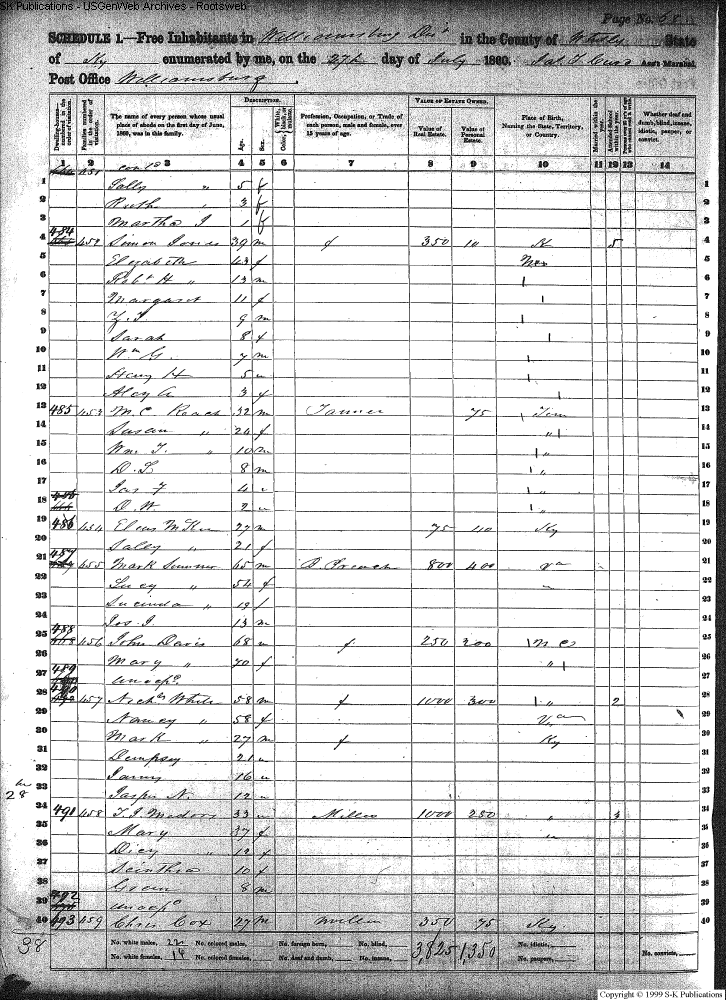 S-K Publications - USGenWeb Archives - Rootsweb
Page No. 68
SCHEDULE 1.—Free Inhabitants in Williamsburg Dist in the County of Whitley State
of Ky enumerated by me, on the 27th day of July 1860. Ass't Marshal.
Post Office Williamsburg
Dwelling-houses—numbered in the order of visitation.
Families numbered in the order of visitation.
The name of every person whose usual place of abode on the first day of June, 1860, was in this family.
DESCRIPTION.
Age.
Sex.
Color, White, black, or mulatto.
Profession, Occupation, or Trade of each person, male and female, over 15 years of age.
VALUE OF ESTATE OWNED.
Value of Real Estate.
Value of Personal Estate.
Place of Birth, Naming the State, Territory, or Country.
Married within the year.
Attended School within the year.
Whether deaf and dumb, blind, insane, idiotic, pauper, or convict.
1 2 3 4 5 6 7 8 9 10 11 12 13 14
451 contd
1 Sally " 5 f 1
2 Ruth " 3 f 2
3 Martha J 1 f 3
4 484 452 Simon Jones 39 m f 350 10 K 5 4
5 Elizabeth 43 f 5
6 Robt H " 13 m 6
7 Margaret 11 f 7
8 9 m 8
9 Sarah 8 f 9
10 Wm G. 7 m 10
11 Henry H 5 11
12 3 f 12
13 485 453 M. C. Roach 32 m Tanner 75 Tenn 13
14 Susan " 24 f " 14
15 Wm. T. " 10 m " 15
16 D. L 8 m " 16
17 Jas F 4 " 17
18 D. W 2 " 18
19 486 454 27 m 75 40 Ky 19
20 Sally " 21 f 20
21 487 455 Mark Sumner 65 m B Preach 800 400 Va 21
22 Lucy " 54 f " 22
23 Lucinda " 19 f 23
24 Jos. J. 13 m 24
25 488 456 John Davis 68 f 250 200 N C 25
26 Mary " 70 f " 26
27 489 unocpd 27
28 490 457 Nichs White 58 m f 1000 300 " 2 28
29 Nancy " 58 f Va 29
30 Mark " 27 m f Ky 30
31 Dempsey 21 31
32 16 32
33 Jasper N. 12 33
34 491 458 T. J. Meadors 33 Miller 1000 250 " 3 34
35 Mary 37 f " 35
36 Dicy " 12 f 36
37 Scinthia 10 f 37
38 Green 8 m 38
39 492 unocpd 39
40 493 459 Chris Cox 27 m Miller 350 75 Ky. 40
28
38
No. white males, 22 No. colored males, No. foreign born, No. blind, 3,825 1,350 No. idiotic,
No. white females, 14 No. colored females, No. deaf and dumb, No. insane, No. paupers, No. convicts,
Copyright © 1999 S-K Publications